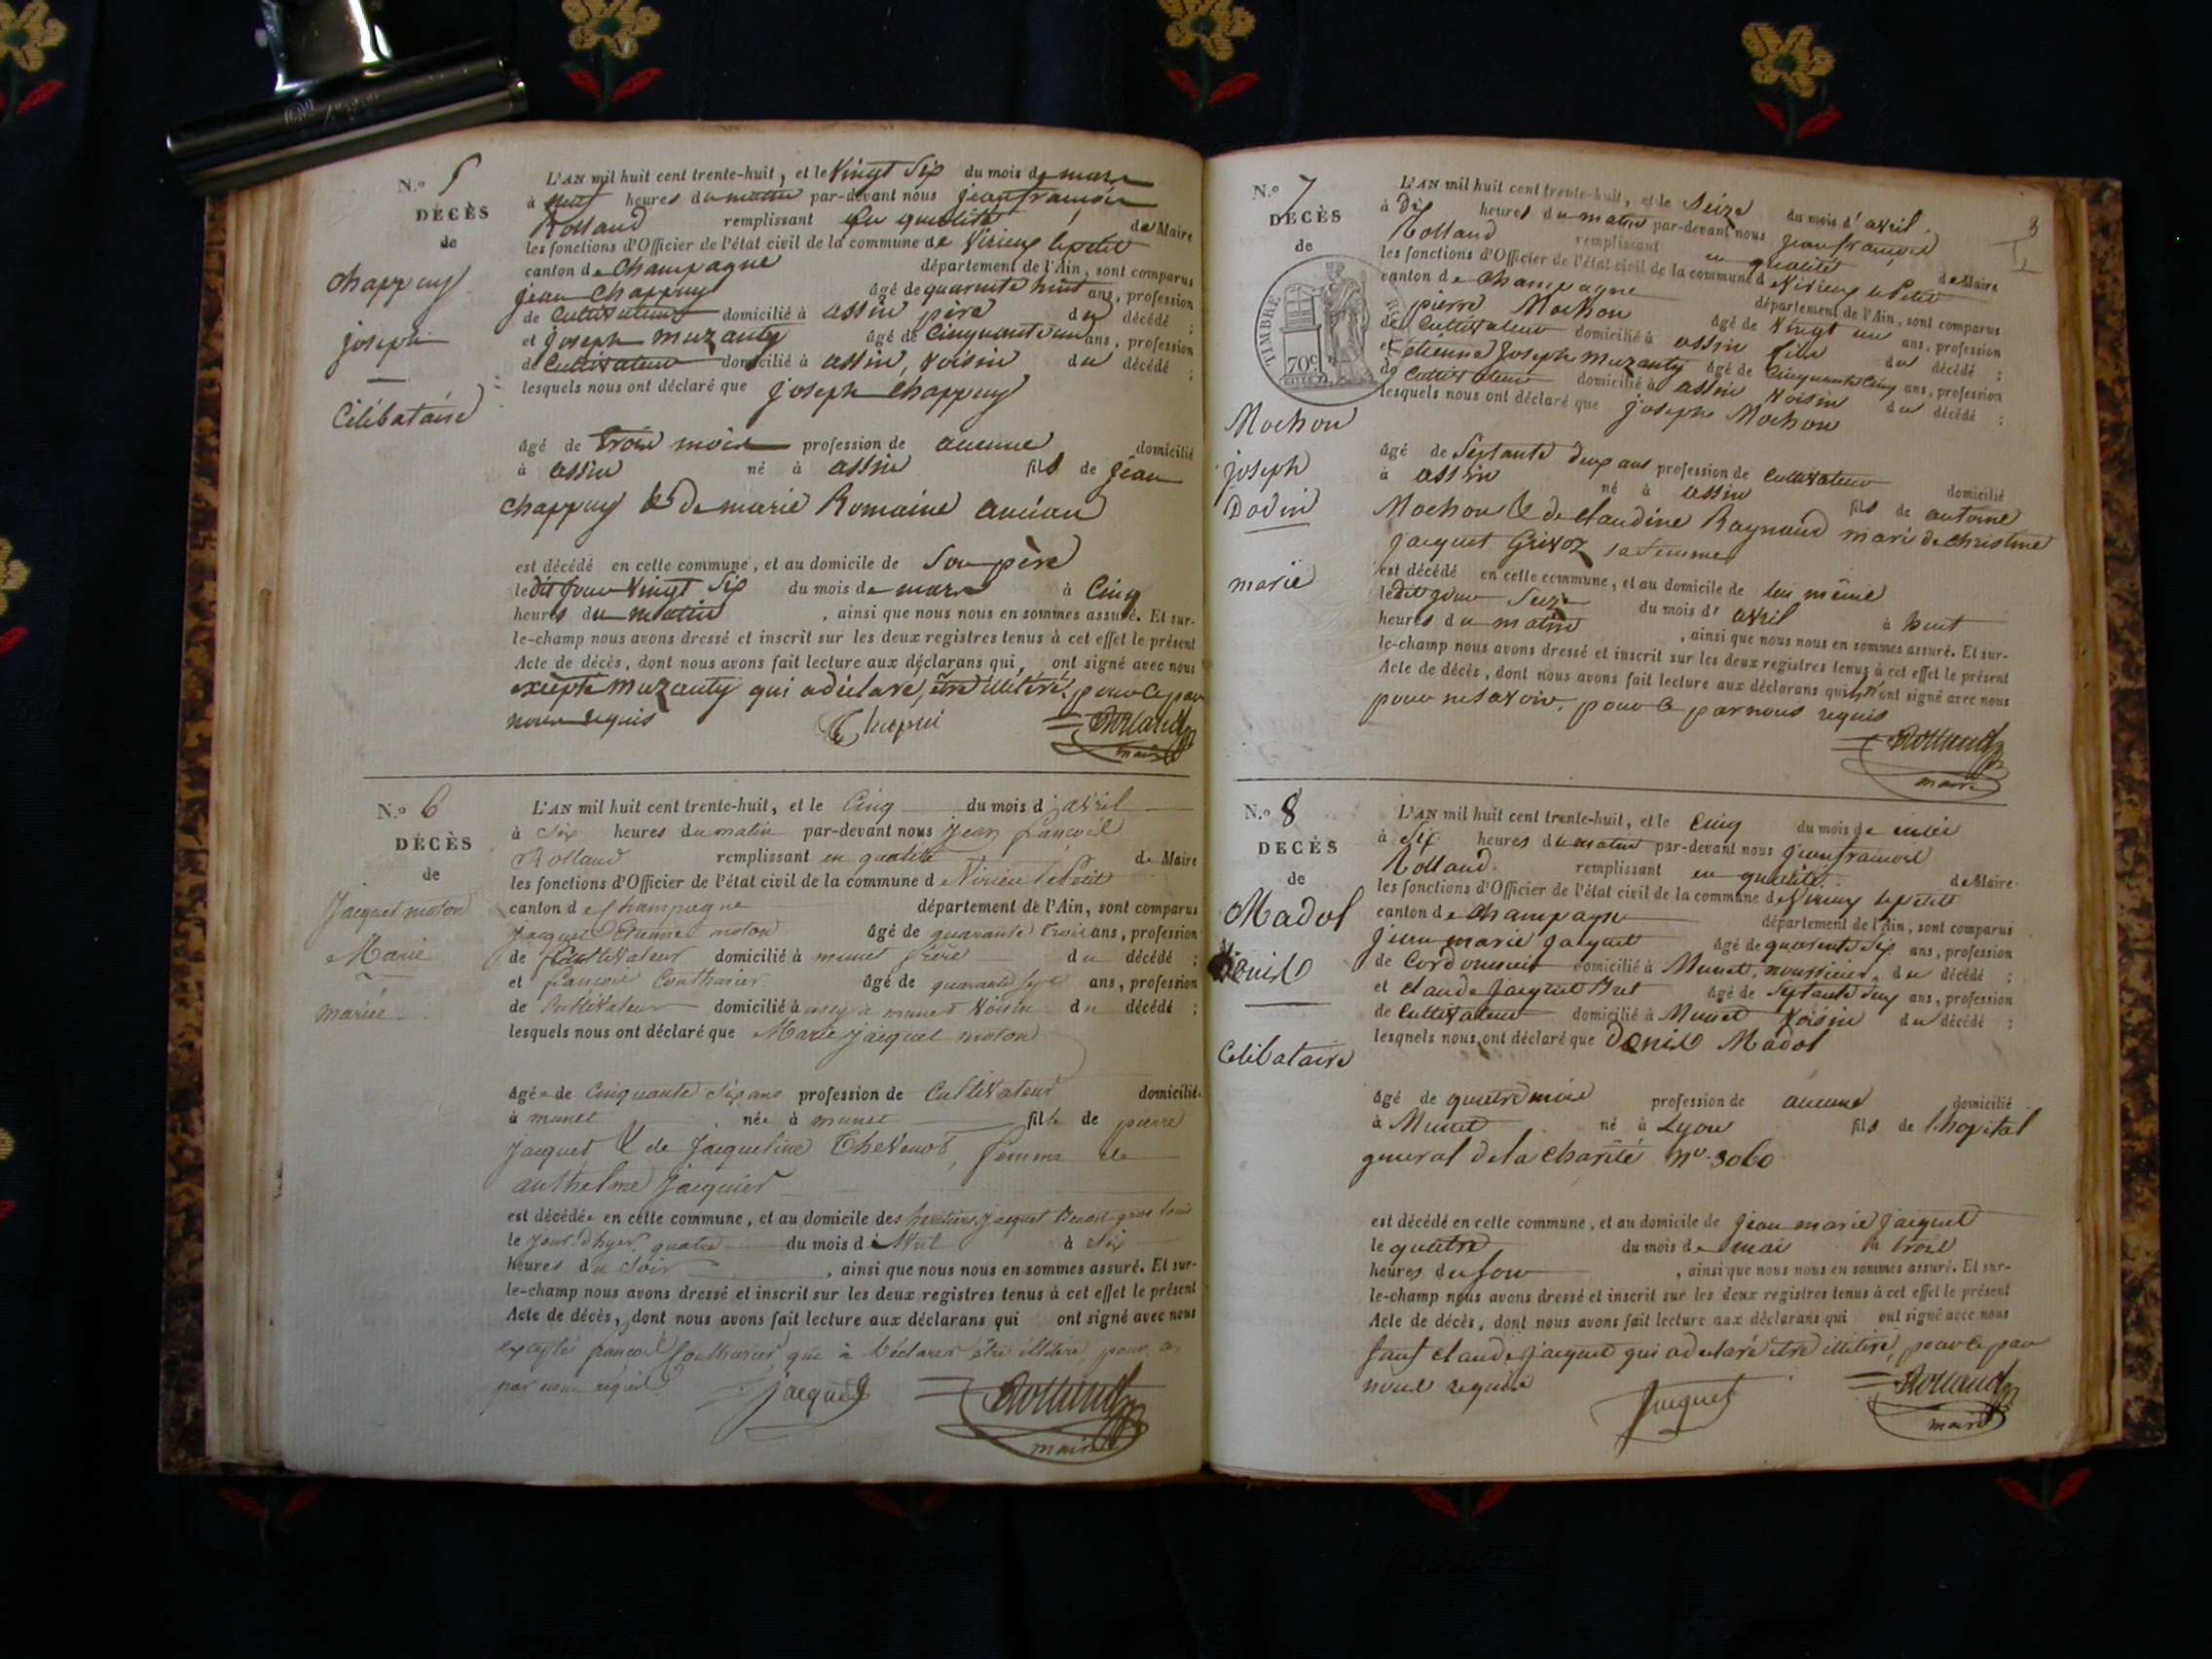 N.º 5
DÉCÈS
de
Chappuy
joseph
Célibataire
L'AN mil huit cent trente-huit, et le Vingt Six du mois de mars
à neuf heures du matin par-devant nous jean françois
Rolland remplissant en qualité de Maire
les fonctions d'Officier de l'état civil de la commune de Virieux le petit
canton de Champagne département de l'Ain, sont comparus
jean Chappuy âgé de quarante huit ans, profession
de Cultivateur domicilié à assin père du décédé ;
et joseph muzanty âgé de Cinquante un ans, profession
de Cultivateur domicilié à assin, voisin du décédé ;
lesquels nous ont déclaré que joseph Chappuy
âgé de trois mois profession de aucune domicilié
à assin né à assin fils de jean
Chappuy & de marie Romaine
est décédé en cette commune, et au domicile de Son père
le dit jour Vingt Six du mois de mars à Cinq
heures du matin, ainsi que nous nous en sommes assuré. Et sur-
le-champ nous avons dressé et inscrit sur les deux registres tenus à cet effet le présent
Acte de décès, dont nous avons fait lecture aux déclarans qui, ont signé avec nous
excepté muzanty qui a déclaré, être illitéré, pour ce par
nous requis Chapui Rolland
maire
N.º 6
DÉCÈS
de
Jacquet moton
Marie
mariée
L'AN mil huit cent trente-huit, et le Cinq du mois d'avril
à Six heures du matin par-devant nous Jean françois
Rolland remplissant en qualité de Maire
les fonctions d'Officier de l'état civil de la commune de Virieu le Petit
canton de Champagne département de l'Ain, sont comparus
Jacquet Etienne moton âgé de quarante trois ans, profession
de Cultivateur domicilié à munet frère du décédé ;
et françois Couthurier âgé de quarante sept ans, profession
de Cultivateur domicilié à munet voisin du décédé ;
lesquels nous ont déclaré que Marie Jacquet moton
âgée de Cinquante Six ans profession de Cultivateur domicilié
à munet née à munet fille de pierre
Jacquet & de Jacqueline Thevenot, femme de
anthelme Jacquier
est décédée en cette commune, et au domicile des héritiers Jacquet Benoit
le jour d'hyer, quatre du mois d'Avril à Six
heures du Soir, ainsi que nous nous en sommes assuré. Et sur-
le-champ nous avons dressé et inscrit sur les deux registres tenus à cet effet le présent
Acte de décès, dont nous avons fait lecture aux déclarans qui ont signé avec nous
excepté françois Couthurier, qui à déclarer être illitéré, pour ce
par nous requis Jacquet Rolland
maire
N.º 7
DÉCÈS
de
TIMBRE
70c
Mochon
joseph
Dodin
marié
3
L'AN mil huit cent trente-huit, et le Seize du mois d'avril
à dix heures du matin par-devant nous jean françois
Rolland remplissant en qualité de Maire
les fonctions d'Officier de l'état civil de la commune de Virieux le Petit
canton de Champagne département de l'Ain, sont comparus
pierre Mochon âgé de Vingt un ans, profession
de Cultivateur domicilié à assin fils du décédé ;
et etienne Joseph muzanty âgé de Cinquante Cinq ans, profession
de Cultivateur domicilié à assin voisin du décédé ;
lesquels nous ont déclaré que joseph Mochon
âgé de Septante deux ans profession de Cultivateur domicilié
à assin né à assin fils de antoine
Mochon & de Claudine Raynaud mari de Christine
jacquet Grivoz sa femme
est décédé en cette commune, et au domicile de lui même
le dit jour Seize du mois d'avril à huit
heures du matin, ainsi que nous nous en sommes assuré. Et sur-
le-champ nous avons dressé et inscrit sur les deux registres tenus à cet effet le présent
Acte de décès, dont nous avons fait lecture aux déclarans qui n'ont signé avec nous
pour ne savoir, pour ce par nous requis
Rolland
maire
N.º 8
DÉCÈS
de
Madol
Denis
Célibataire
L'AN mil huit cent trente-huit, et le Cinq du mois de mai
à Six heures du matin par-devant nous jean françois
Rolland remplissant en qualité de Maire
les fonctions d'Officier de l'état civil de la commune de Virieux le petit
canton de Champagne département de l'Ain, sont comparus
jean marie jacquet âgé de quarante Six ans, profession
de Cordonnier domicilié à Munet, nourricier, du décédé ;
et claude jacquet âgé de Septante deux ans, profession
de Cultivateur domicilié à Munet voisin du décédé ;
lesquels nous ont déclaré que Denis Madol
âgé de quatre mois profession de aucune domicilié
à Munet né à Lyon fils de l'hopital
general de la charité nº 3060
est décédé en cette commune, et au domicile de jean marie jacquet
le quatre du mois de mai à trois
heures du soir, ainsi que nous nous en sommes assuré. Et sur-
le-champ nous avons dressé et inscrit sur les deux registres tenus à cet effet le présent
Acte de décès, dont nous avons fait lecture aux déclarans qui ont signé avec nous
sauf claude jacquet qui a déclaré être illitéré, pour ce par
nous requis Jacquet Rolland
maire